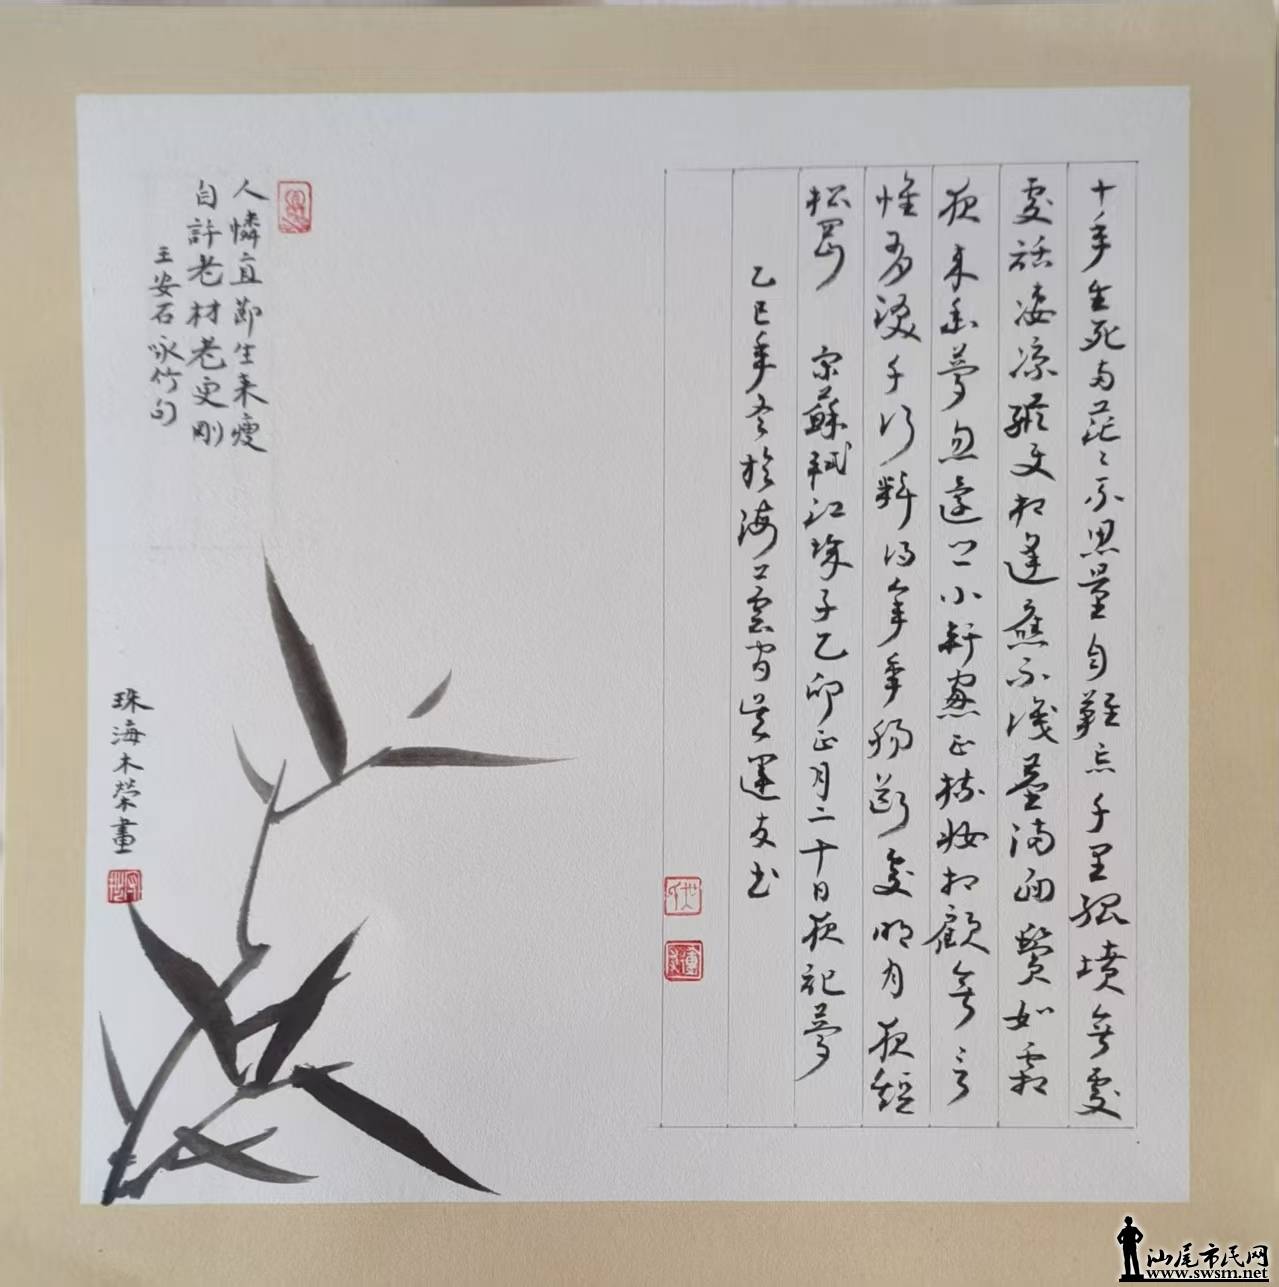 十年生死两茫〻不思量自難忘千里孤墳無處
處話凄凉縱使相逢應不識塵滿面鬢如霜
夜来幽夢忽還鄉小軒窗正梳妝相顧無言
惟有淚千行料得年年腸斷處明月夜短
松岡 宋蘇軾江城子乙卯正月二十日夜記夢
乙巳年冬於海 運友书
人憐直節生来瘦
自許老材老更剛
王安石咏竹句
珠海木榮畫
汕尾市民网
www.swsm.net